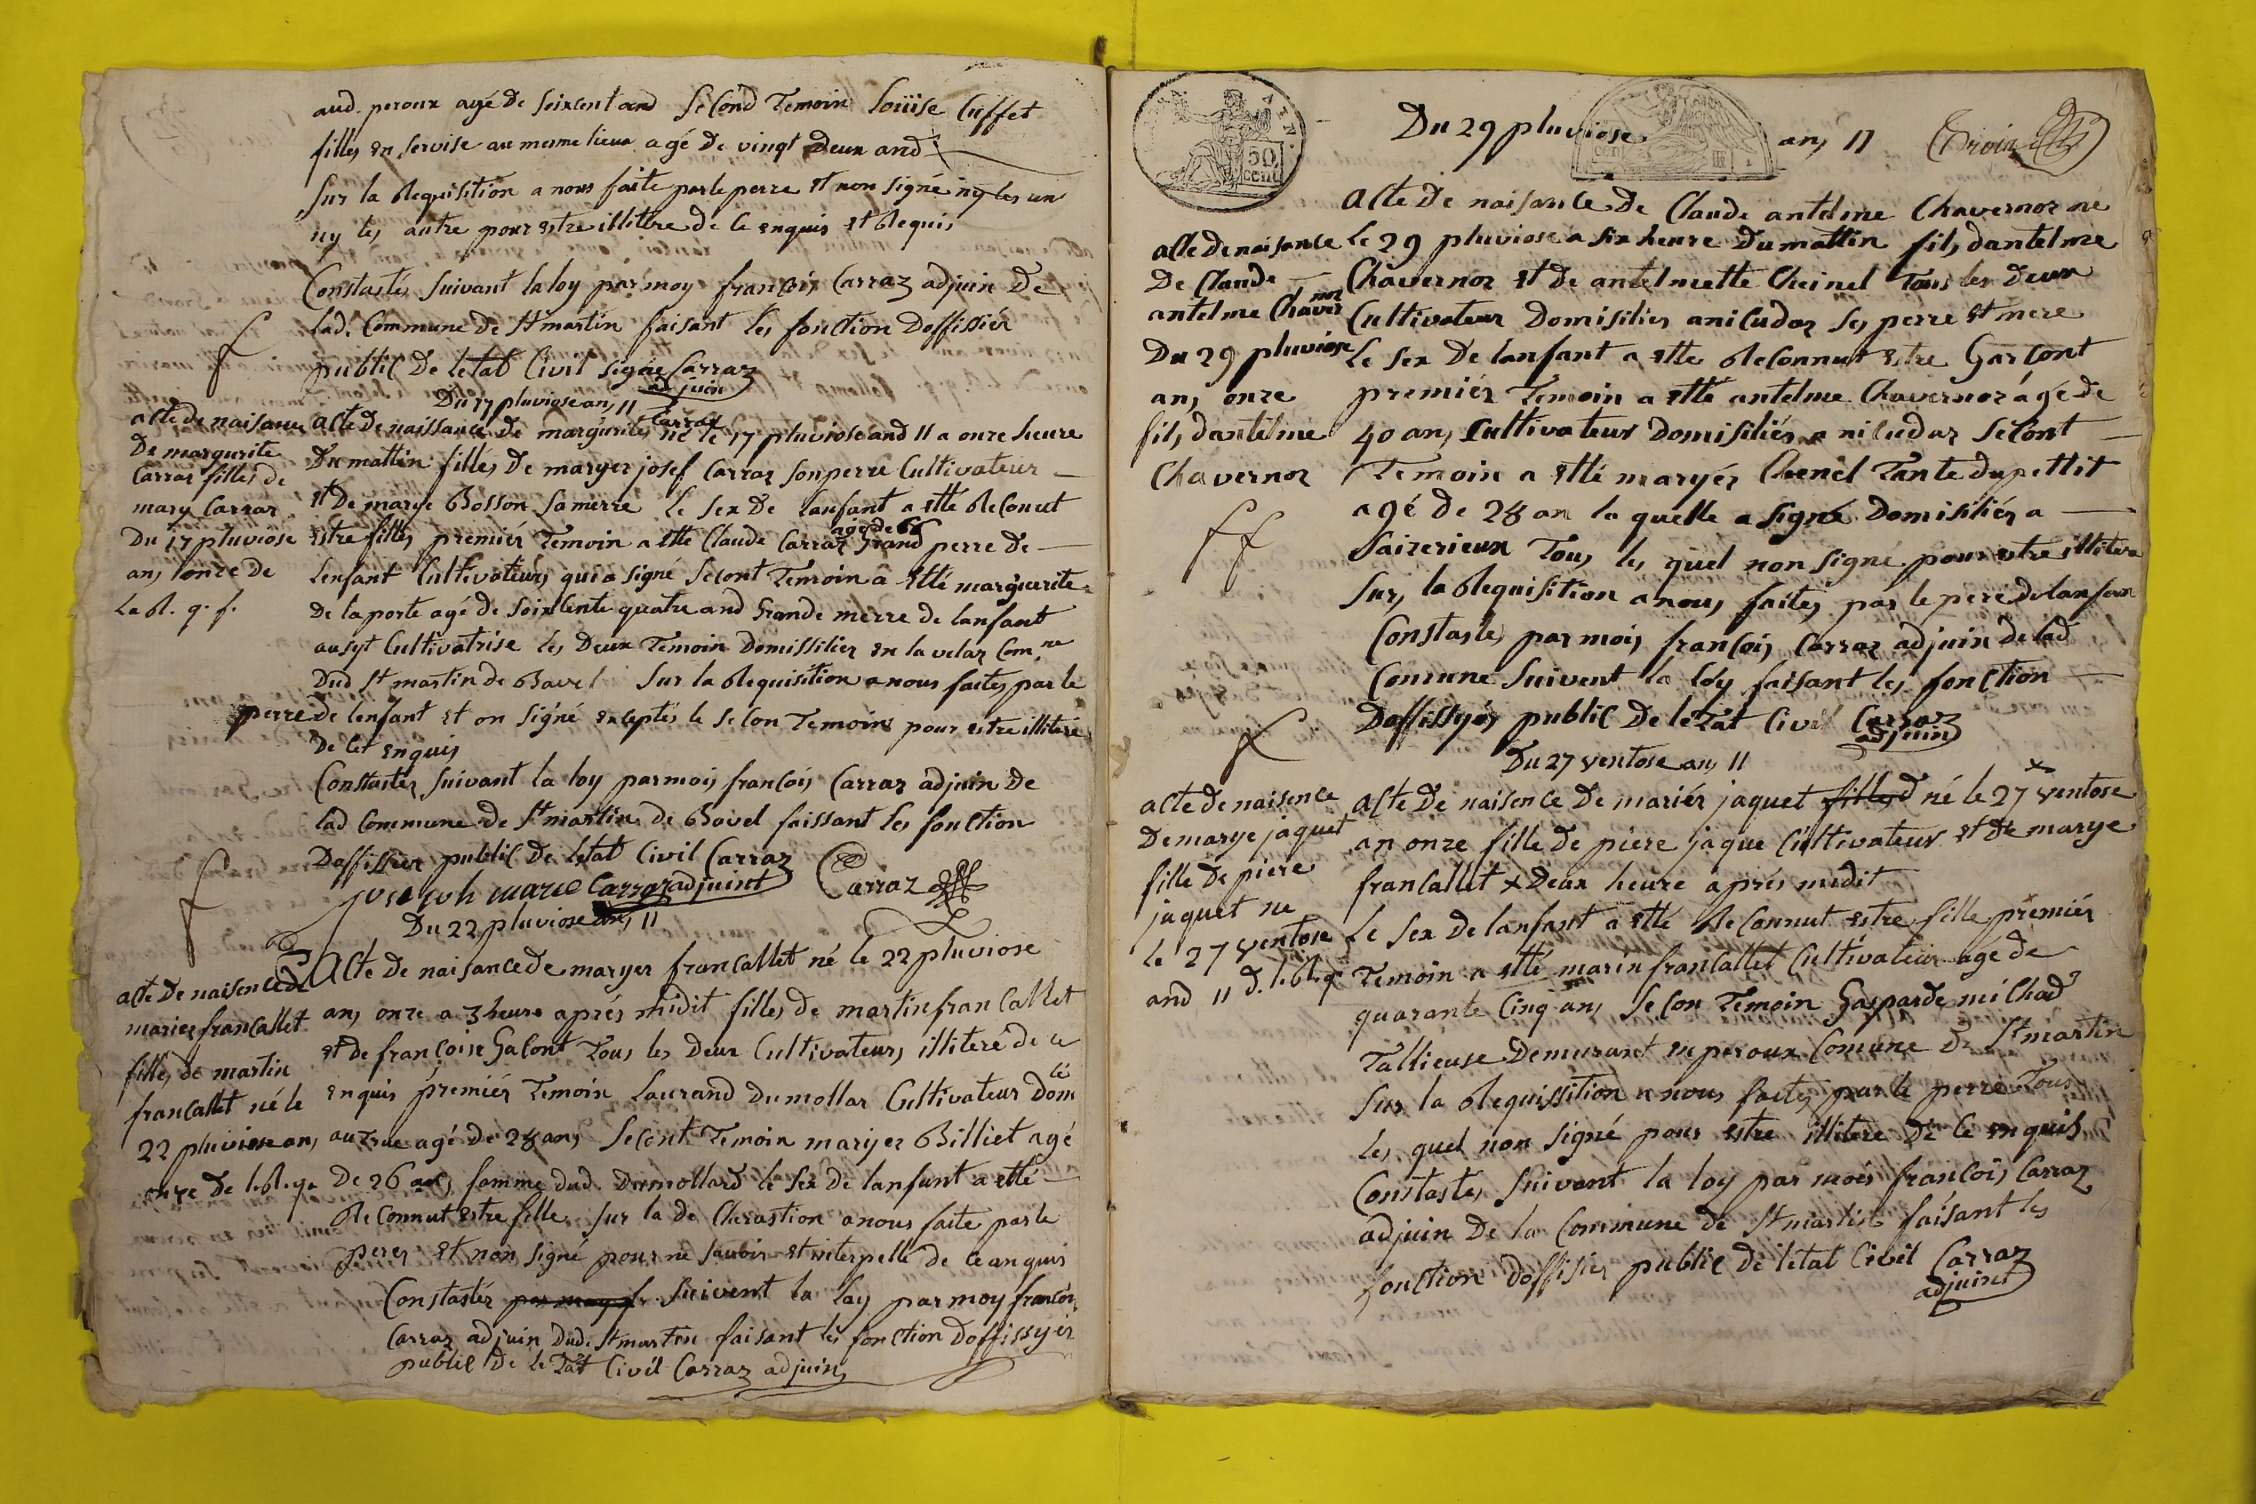 aud. peroux agé de soixent and second temoin Loüise Cuffet
filles en servise au mesme lieux agé de vingt deux and
Sur la Requisition a nous faite par le perre et non signé ny les un
ny les autre pour estre illitere de ce enquis et Requis
Constastés suivant la loy par moy francois Carraz adjuin de
lad. Commune de St martin faisant les fonction Doffissier
public De letat Civil signé Carraz
adjuin
Du 17 pluviose an, 11
acte de naisance
De margurite
Carraz filles de
mary Carraz
Du 17 pluviose
an, onze de
la R. q. f.
Carraz
acte de naissance de margurites né le 17 pluviose and 11 a onze heure
Du mattin filles de maryer josef Carraz son perre Cultivateur
et De marye Bosson sa merre le sex de lanfant a etté Reconut
agé de 66
estre filles premiér temoin a etté Claude Carraz Grand perre de
lenfant Cultivateurs qui a signé secont temoin a etté margurite
De laporte agé de soixsente quatre and Grande merre de lanfant
ausyt Cultivatrise les deux temoin Domissilier en la velaz Com.ne
Dud St martin de Bavel Sur la Requisition a nous faites par le
perre de lenfant et on signé exceptés le secon temoin pour estre illiteré
De cet enquis
Constastés suivant la loy par mois francois Carraz adjuin de
lad Commune de St martin de Bavel faissant les fonction
Doffissier public de letat Civil Carraz
adjuint
joseph marie Carraz Carraz
Du 22 pluviose an, 11
acte de naisence de
marier francallet
filles de martin
francallet né le
22 pluviose an,
onze de la Rep.
Acte de naisance de maryer francallet né le 22 pluviose
an, onze a 3 heure aprés midit filles de martin francallet
et de françoise Galont tous les deux Cultivateurs, illiteré de ce
enquis premiér temoin Laurand Dumollar Cultivateur dom
lé
autrue agé de 28 an, secont temoin mariyer Billiet agé
de 26 an, femme dud. Dumollard le sex de lanfant a etté
Reconnut estre fille sur la de Cherastion a nous faite par le
perer et non signé pour ne savoir et interpellé de ce anquis
Constastér par moy f. suivent la loy par moy francois
Carraz adjuin dud. St martin faisant les fonction doffissyér
public de letat Civil Carraz adjuin
50 cent
Du 29 pluviose an, 11
acte de naisance
De Claude
antelme Chavernoz
Du 29 pluviose
an, onze
fils dantelme
Chavernoz
Acte De naisance de Claude antelme Chavernoz né
le 29 pluviose a six heure Du mattin fils, dantelme
Chavernoz et de antelmette Cheinel tous les deux
Cultivateur Domisilier a niCudaz ses perre et mere
le sex de lanfant a etté Reconnut estre Garcont
premiér temoin a etté antelme Chavernoz agé de
40 an, Cultivateur Domisiliés a niCudaz secont
temoin a etté maryér Chenel tante du pettit
agé de 28 an la quelle a signé Domisiliér a
Tous les quel non signé pour estre illitere
Sur, la Requisition a nous, faites, par le pere de lanfan
Constastes par mois francois Carraz adjuin de lad
Comune suivent la loy faisant les fonction
Doffissyés public De le tat Civil Carraz
adjuin
Du 27 ventose an, 11
acte de naisence
De marye jaquet
fille de piere
jaquet ne
le 27 ventose
and 11 d. la Rq
acte de naisence de mariér jaquet filles d né le 27 ventose
an onze fille de piere jaque Cultivateur et de marye
francallet x deux heure aprés midit
Le sex de lanfant a etté Reconnut estre fille premiér
temoin a etté marin francallet Cultivateur agé de
quarante Cinq an, secon temoin Gasparde miChad
Tallieuse Demurant en peroux Comune de St martin
Sur la Requissition a nous faites par le perre tous
les quel non signé pour estre illitere de ce enquis
Constastes suivent la loy par mois francois Carraz
adjuin De la Commune de St martin faisant les
fonction doffisier public de letat Civil Carraz
adjuint